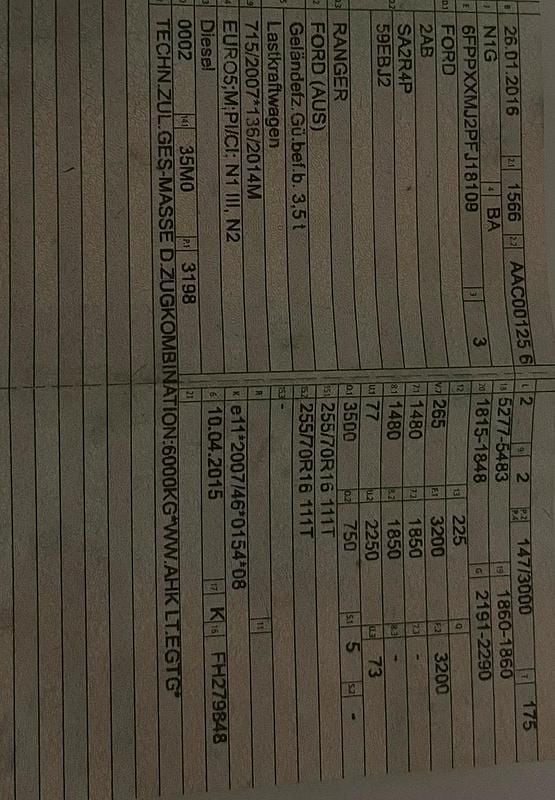 B 26.01.2016 2.1 1566 2.2 AAC00125 6
J N1G 4 BA
E 6FPPXXMJ2PFJ18109 3 3
D.1 FORD
2AB
D.2 SA2R4P
59EBJ2
D.3 RANGER
2 FORD (AUS)
5 Geländefz.Gü.bef.b. 3,5 t
Lastkraftwagen
9 715/2007*136/2014M
4 EURO5;M;PI/CI; N1 III, N2
3 Diesel
0002 14.1 35M0 P.1 3198
L 2 9 2 P.2 P.4 147/3000 T 175
18 5277-5483 19 1860-1860
20 1815-1848 G 2191-2290
12 13 225 Q
V.7 265 F.1 3200 F.2 3200
7.1 1480 7.2 1850 7.3 -
8.1 1480 8.2 1850 8.3 -
U.1 77 U.2 2250 U.3 73
O.1 3500 O.2 750 S.1 5 S.2 -
15.1 255/70R16 111T
15.2 255/70R16 111T
15.3 -
R 11
K e11*2007/46*0154*08
6 10.04.2015 17 K 16 FH279848
21
TECHN.ZUL.GES-MASSE D.ZUGKOMBINATION:6000KG*WW.AHK LT.EGTG*